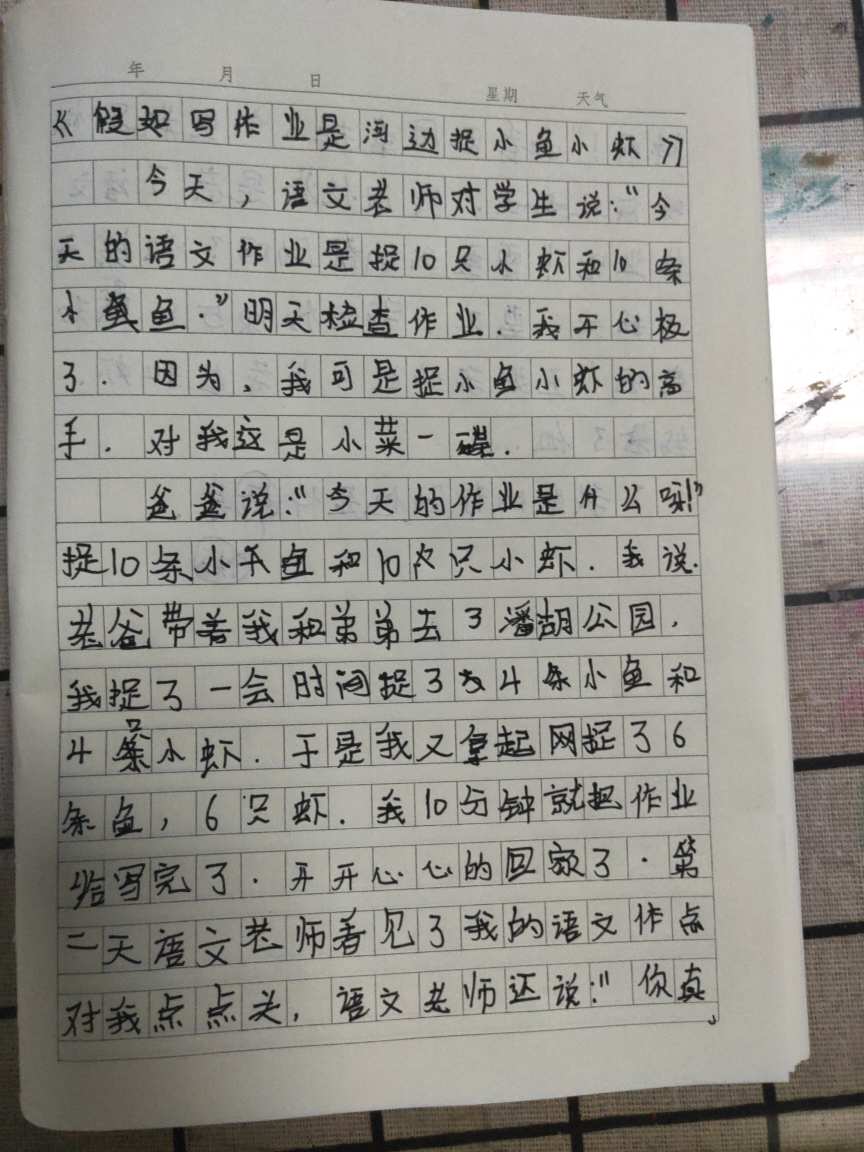 年 月 日 星期 天气
《假如写作业是河边捉小鱼小虾》
今天，语文老师对学生说："今
天的语文作业是捉10只小虾和10条
小鱼."明天检查作业.我开心极
了.因为,我可是捉小鱼小虾的高
手.对我这是小菜一碟.
爸爸说:"今天的作业是什么呀!"
捉10条小鱼和10只小虾.我说.
老爸带着我和弟弟去了潘湖公园,
我捉了一会时间捉了4条小鱼和
4只小虾.于是我又拿起网捉了6
条鱼,6只虾.我10分钟就把作业
给写完了.开开心心的回家了.第
二天语文老师看见了我的语文作点
对我点点头,语文老师还说:"你真